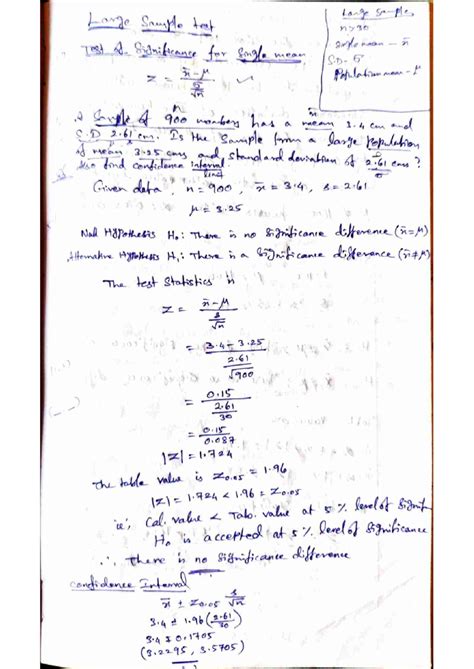 Large Sample test
Large Sample
n>30
mean - x̄
S.D - σ
Population mean - μ
Test of Significance for Single mean
Z = x̄ - μ / σ/√n
A Sample of 900 members has a mean 3.4 cm and
S.D 2.61 cm. Is the Sample from a large Population
of mean 3.25 cms and standard deviation of 2.61 cms?
Also find confidence interval
limit
Given data, n = 900, x̄ = 3.4, s = 2.61
μ = 3.25
Null Hypothesis H₀: There is no Significance difference (x̄=μ)
Alternative Hypothesis H₁: There is a Significance difference (x̄≠μ)
The test Statistics is
Z = x̄ - μ / s/√n
= 3.4 - 3.25 / 2.61/√900
= 0.15 / 2.61/30
= 0.15 / 0.087
|Z| = 1.724
The table value is Z0.05 = 1.96
|Z| = 1.724 < 1.96 = Z0.05
ie, Cal. value < Tab. value at 5 % level of Signifi
H₀ is accepted at 5 % level of Significance
∴ There is no Significance difference
Confidence Interval
x̄ ± Z0.05 s/√n
3.4 ± 1.96 (2.61/30)
3.4 ± 0.1705
(3.2295, 3.5705)